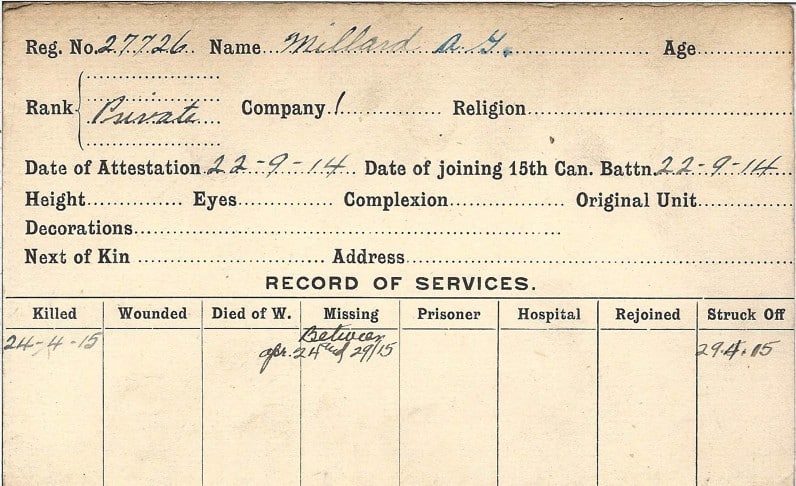 Reg. No. 27726 Name Millard A. G. Age
Rank Private Company 1 Religion
Date of Attestation 22-9-14 Date of joining 15th Can. Battn. 22-9-14
Height Eyes Complexion Original Unit
Decorations
Next of Kin Address
RECORD OF SERVICES.
Killed Wounded Died of W. Missing Prisoner Hospital Rejoined Struck Off
24-4-15 Between 29.4.15
apr. 24 and 29/15